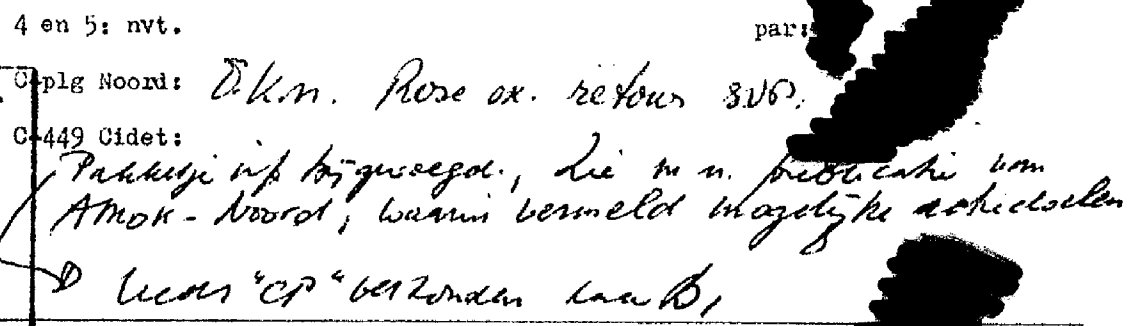 4 en 5: nvt.
par:
C-plg Noord: T.k.n. Rose ex. retour svp.
C-449 Cidet:
Pakketje inf bijgevoegd., zie m.n. publicatie van
AMOK-Noord, waarin vermeld mogelijke actiedoelen
"CP" verzonden aan B,